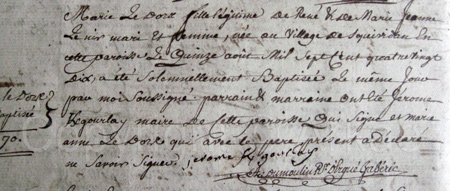 Marie Le Dore fille legitime de René & de Marie Jeanne
Le nir mari et femme, née au Village de Squividan En
cette paroisse Le Quinze aout Mil Sept Cent quatre vingt
dix, a été Solennellement Baptisée Le même Jour
le Dore par moi Soussigné parrain & marraine ont été Jerome
Baptisée Kgourlay maire de Cette paroisse Qui Signe et marie
90. anne Le Dore qui avec le pere présent a déclaré
ne Savoir Signer, jerome Kgourlay
Dumoulin Rr. d'Ergué Gabéric